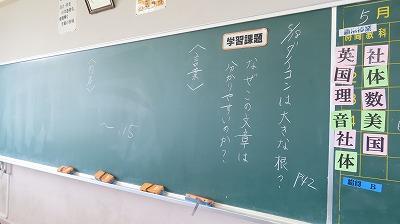 5月
時間教科
社体数美国
英国理音社体
給時 B
学習課題
ダイコンは大きな根？ P42
なぜこの文章は
分かりやすいのか？
〈言葉〉
～.15